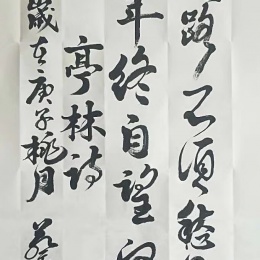 路不須愁
年終自望
亭林詩
歲在庚子桃月